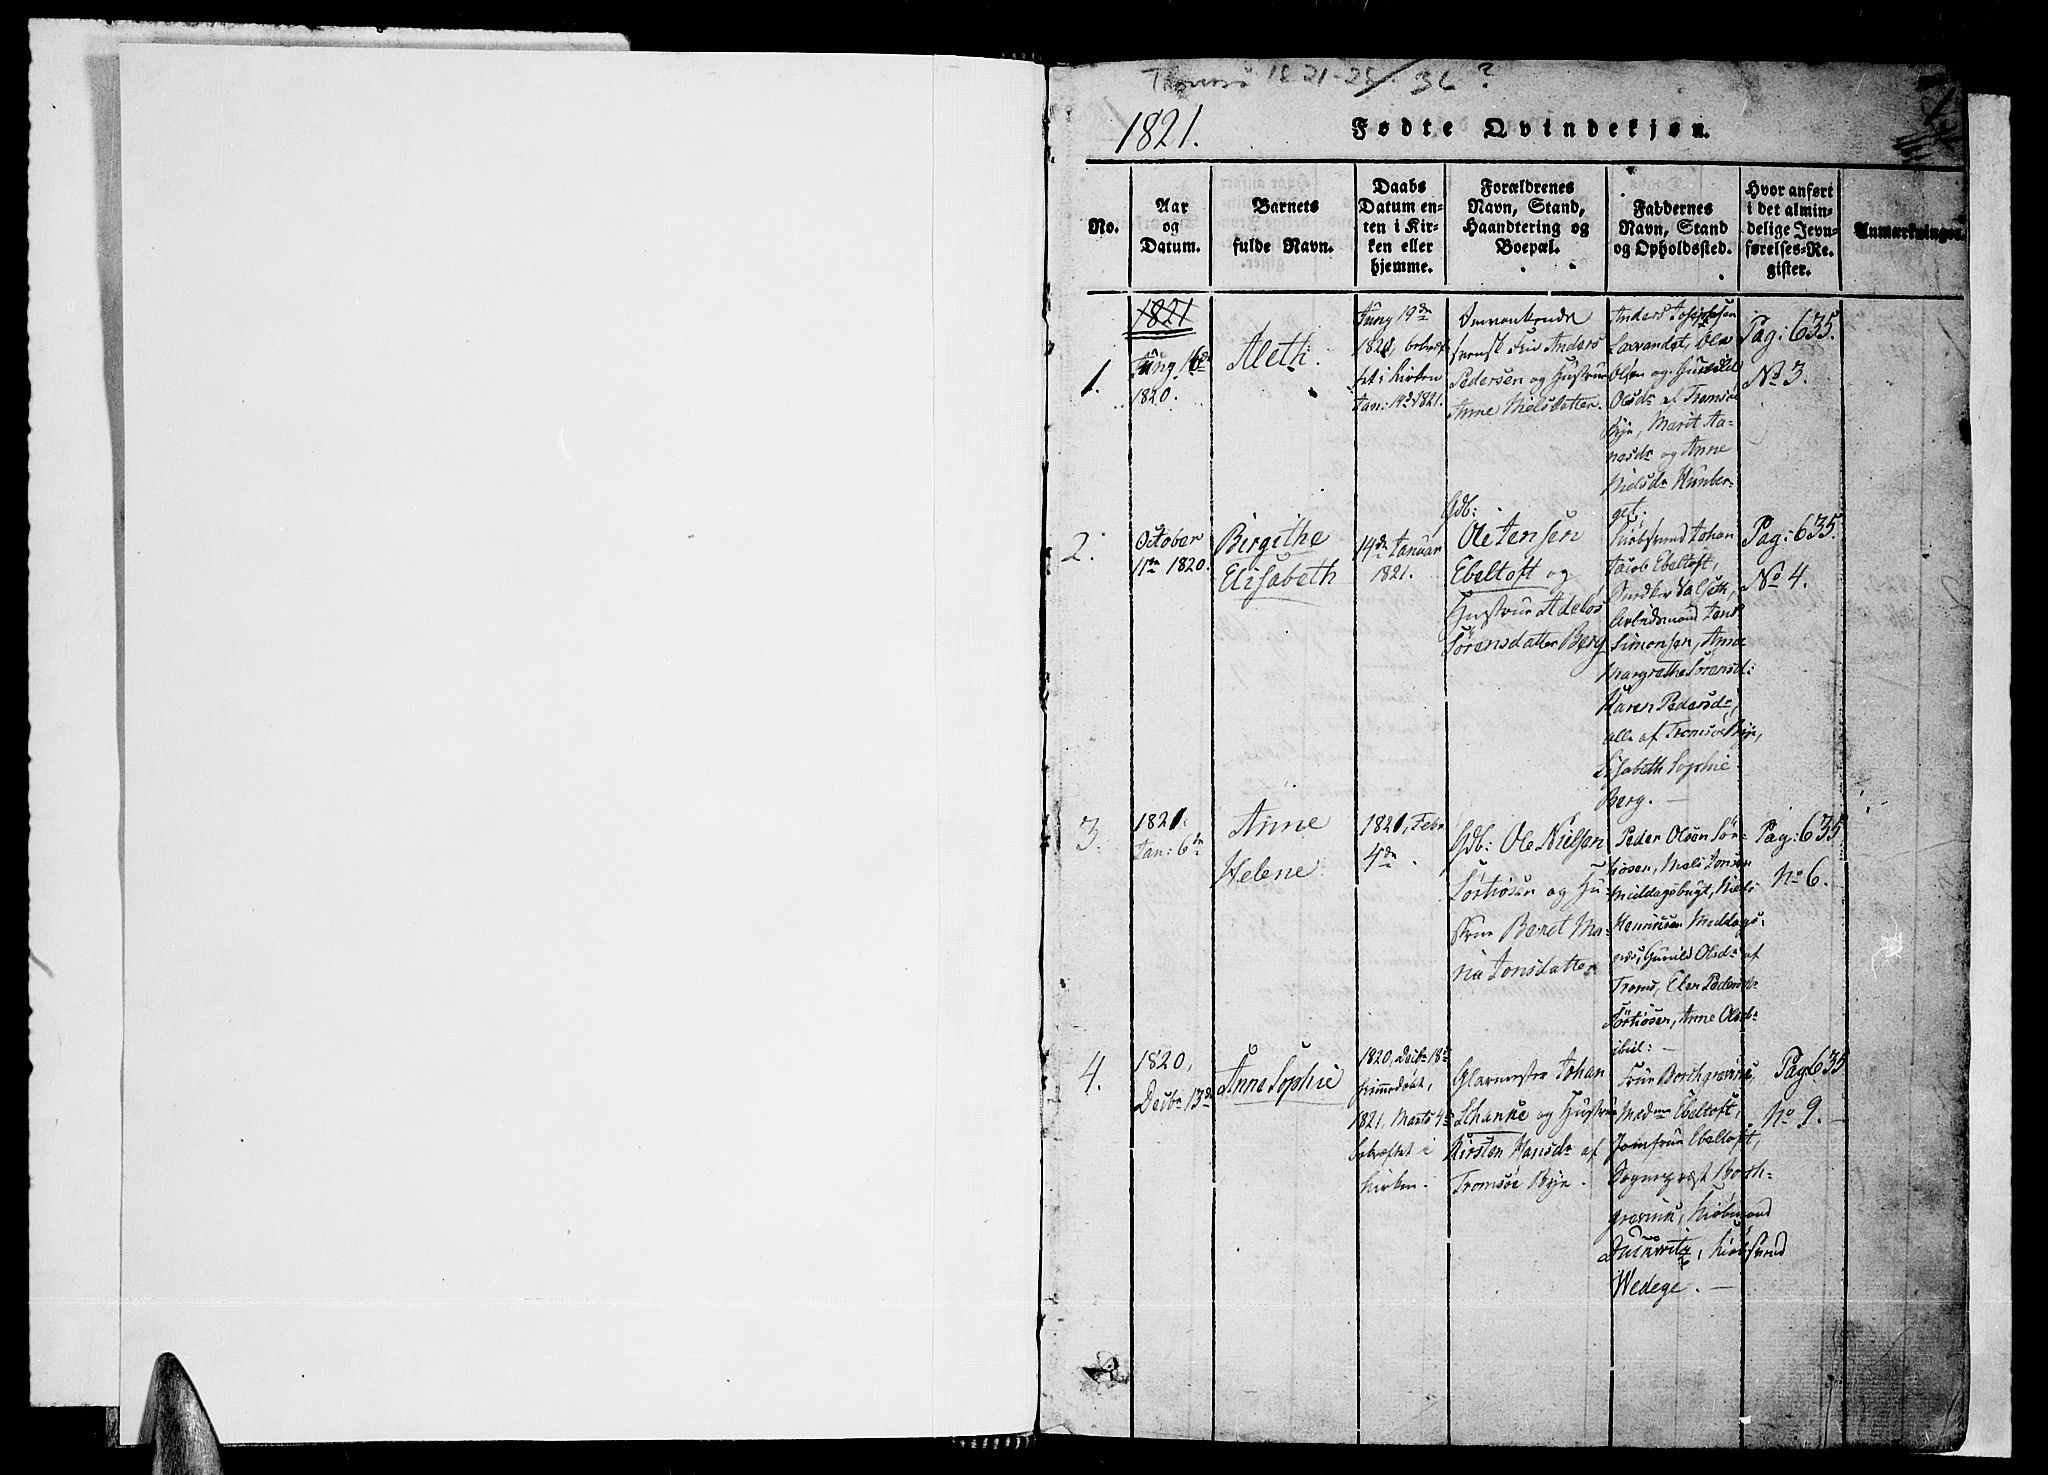 Tromsø 1821-25/36?
1821.
Fødte Qvindekjøn.
No.
Aar
og
Datum.
Barnets
fulde Navn.
Daabs
Datum en-
ten i Kir-
ken eller
hjemme.
Forældrenes
Navn, Stand,
Haandtering og
Boepæl.
Faddernes
Navn, Stand
og Opholdssted.
Hvor anført
i det almin-
delige Jevn-
førelses-Re-
gister.
Anmærkninger.
1821
1.
16de
1820.
Aleth.
19de
1820, bekræf-
tet i Kirken
Jan: 14de 1821.
Omvankende
Anders
Pedersen og Hustrue
Anne Nielsdatter.
Anders Josephsen
Ole
Olsen og Gunild
Olsdr af Tromsøe
Bye, Marit
og Anne
Nielsdr
Pag: 635.
No 3.
2.
October
11te 1820.
Birgithe
Elisabeth
14de Januar
1821.
Gdb:
Ole Jensen
Ebeltoft og
Hustrue Adelos
Sørensdatter Berg
Johan
Jacob Ebeltoft,
Arbeidsmand Jens
Simonsen, Anne
Margrethe Sørensd:
Karen Pedersdr,
alle af Tromsøe Bye,
Elisabeth Sophie
Berg. —
Pag: 635.
No 4.
3.
1821.
Jan: 6te
Anne
Helene
1821, Febr
4de.
Gdb: Ole Nielsen
og Hu-
strue Beret Ma-
ria Jonsdatter
Peder Olsen
Niels Jonsen
Middagsbugt, Niels
Henriksen Middags-
næs, Gunild Olsdr af
Troms, Elen Pedersdr
Anne Olsdr
Pag: 635
No 6.
4.
1820,
Decbr 13de
Anne Sophie
1820, Decbr 18de
hjemmedøbt,
1821, Marts 4de
bekræftet i
Kirken.
Glarmester Johan
Schanke og Hustrue
Kirsten Hansdr af
Tromsøe Bye.
Frue Borchgrevink,
Madme Ebeltoft,
Jomfrue Ebeltoft,
Sogneprest Borch-
grevink, Kiøbmand
Kiøbsvend
Wedege. —
Pag 635
No 9.